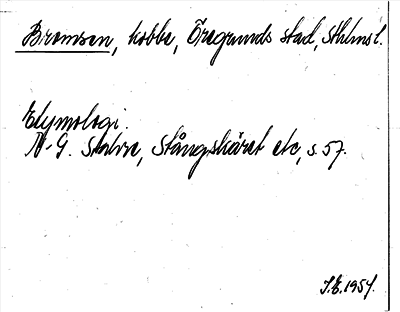 Bromsen, kobbe, Öregrunds stad, Sthlms l.
Etymologi.
N.-G. Stahre, Stångskäret etc, s. 57.
S.E. 1957.